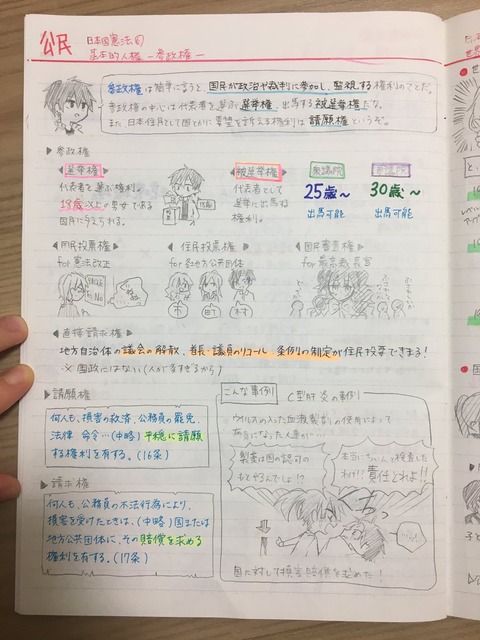 公民
日本国憲法④
基本的人権 ー参政権ー
参政権は簡単に言うと、国民が政治や裁判に参加し、監視する権利のことだ。
参政権の中心は代表者を選ぶ選挙権、出馬する被選挙権だな。
また日本住民として国とかに要望を訴える権利は請願権というぞ。
▶参政権
◀選挙権▶
代表者を選ぶ権利。
18歳以上の男女である
国民に与えられる。
◀被選挙権▶
代表者として
選挙に出馬する
権利。
衆議院
25歳〜
出馬可能
参議院
30歳〜
出馬可能
◀国民投票権▶
for 憲法改正
◀住民投票権▶
for 地方公共団体
市 町 村
◀国民審査権▶
for 最高裁長官
◀直接請求権▶
地方自治体の議会の解散、首長・議員のリコール、条例の制定が住民投票できまる!
※国政にはない(人が多すぎるから)
▶請願権
何人も、損害の救済、公務員の罷免、
法律 命令…(中略)平穏に請願
する権利を有する。(16条)
▶請求権
何人も、公務員の不法行為により、
損害を受けたときは、(中略)国または
地方公共団体に、その賠償を求める
権利を有する。(17条)
こんな事例
C型肝炎の事例
ウイルスの入った血液製剤の使用によって
病気になった人達が…
製薬は国の認可の
もとやるんでしょ!?
本当にちゃんと検査した
わけ!?責任とれよ!!
国に対して損害賠償を求めた!